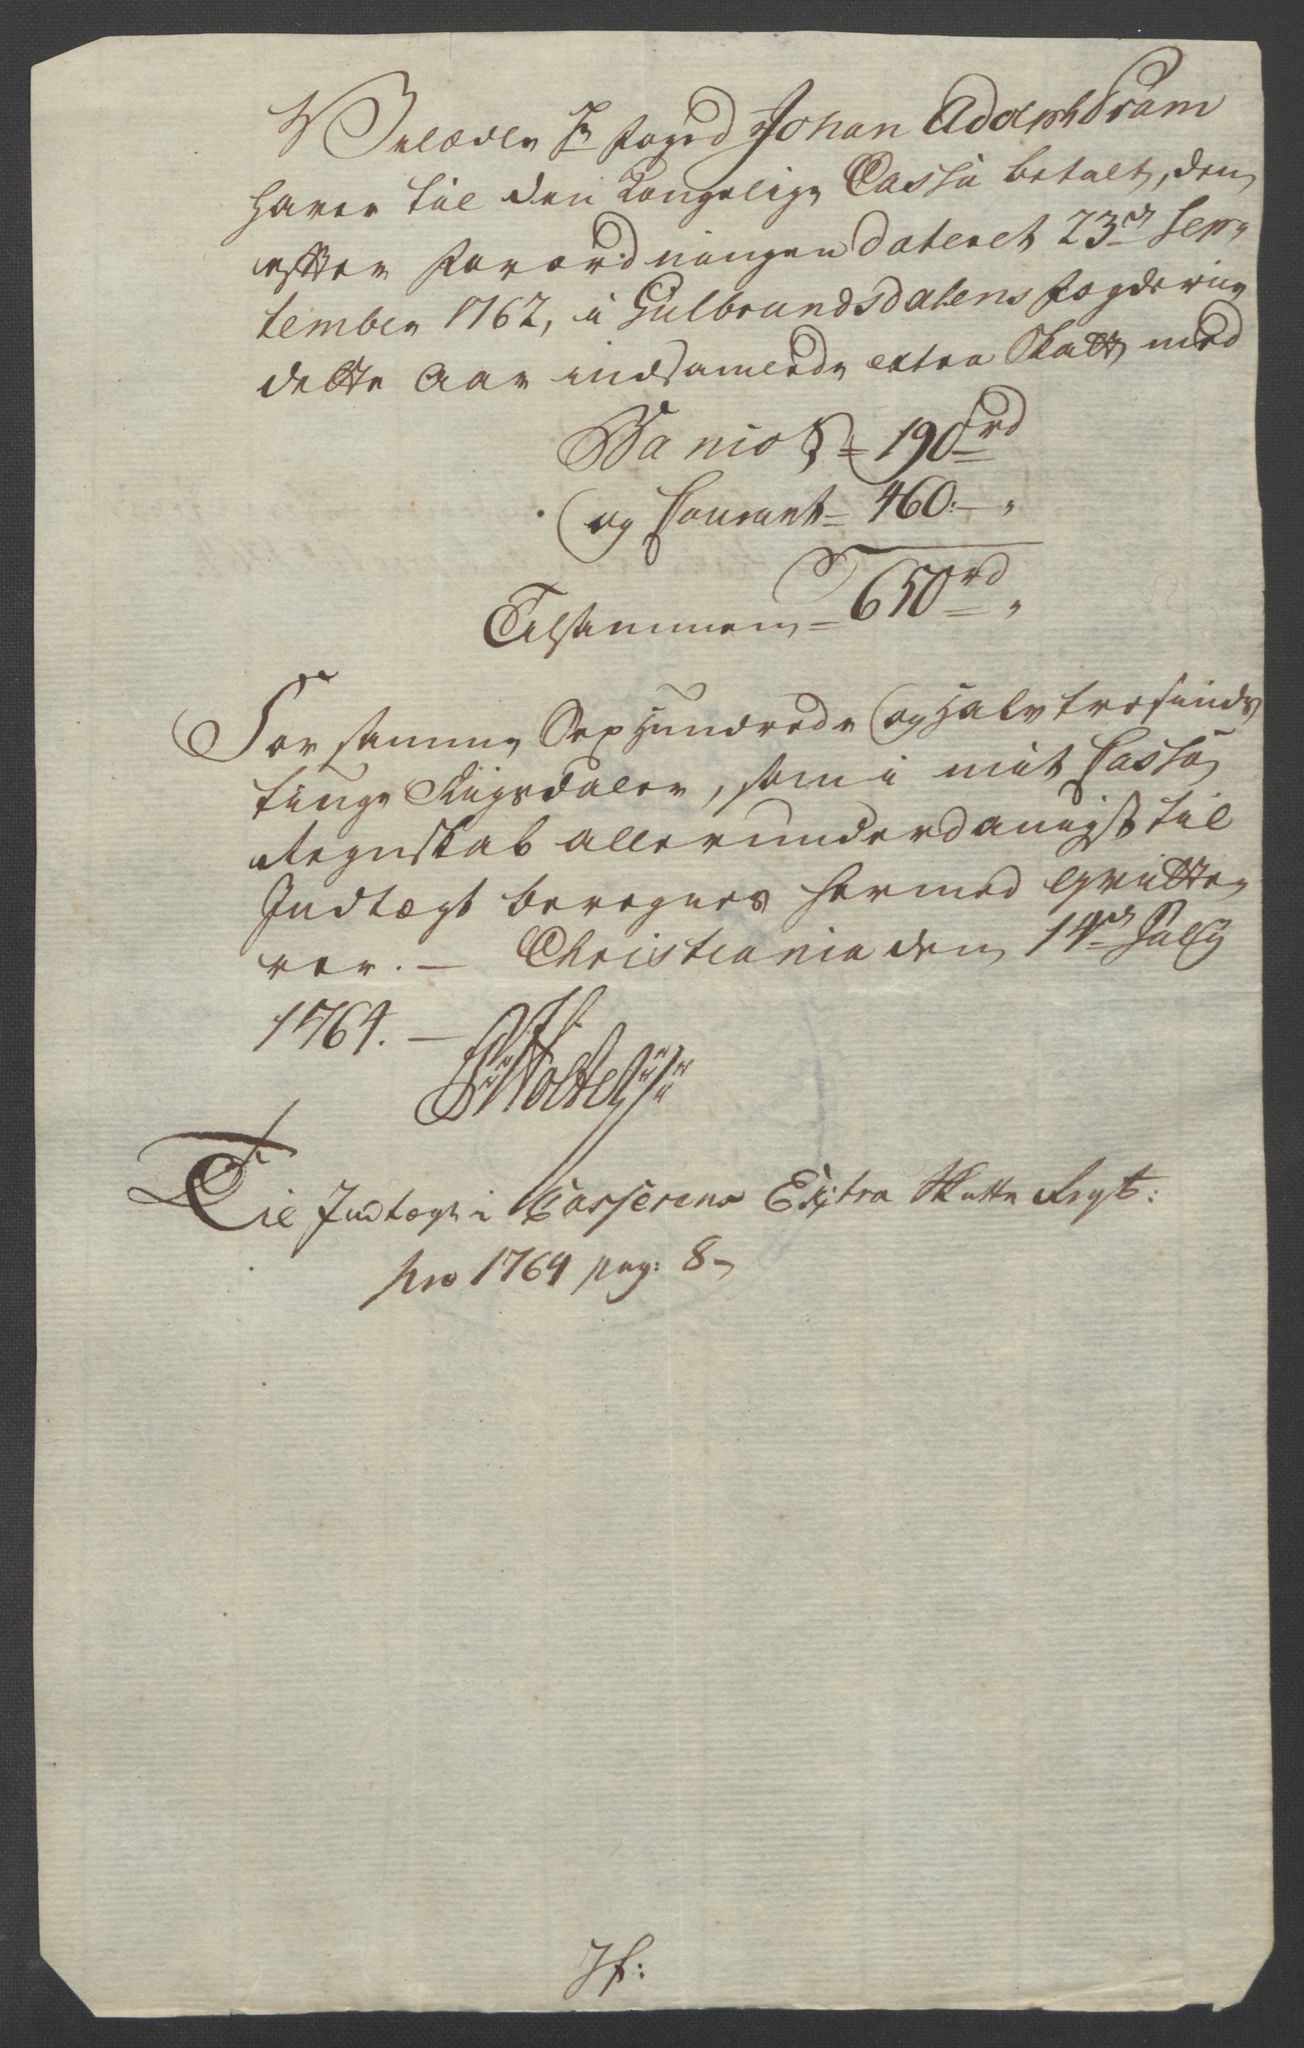 Velædle Hr foged Johan Adolph Pram
haver til den Kongelige Cassa betalt, den
efter Forordningen dateret 23de Sep-
tember 1762, i Gulbrandsdalens fogderie
dette Aar indsamlede extra Skatt med
Banco S = 190 rd
og Courant = 460:—"
Tilsammen = 650 rd "
For samme Sex Hundrede og Halvtresinds
tiuge Rigsdaler, som i mit Cassa
Regnskab allerunderdanigst til
Indtægt beregnes hermed qvitte-
rer. — Christiania den 14de July
1764. —
Holte
Til Indtægt i Casserens Extra Skatte Regt:
pro 1764 pag: 8-